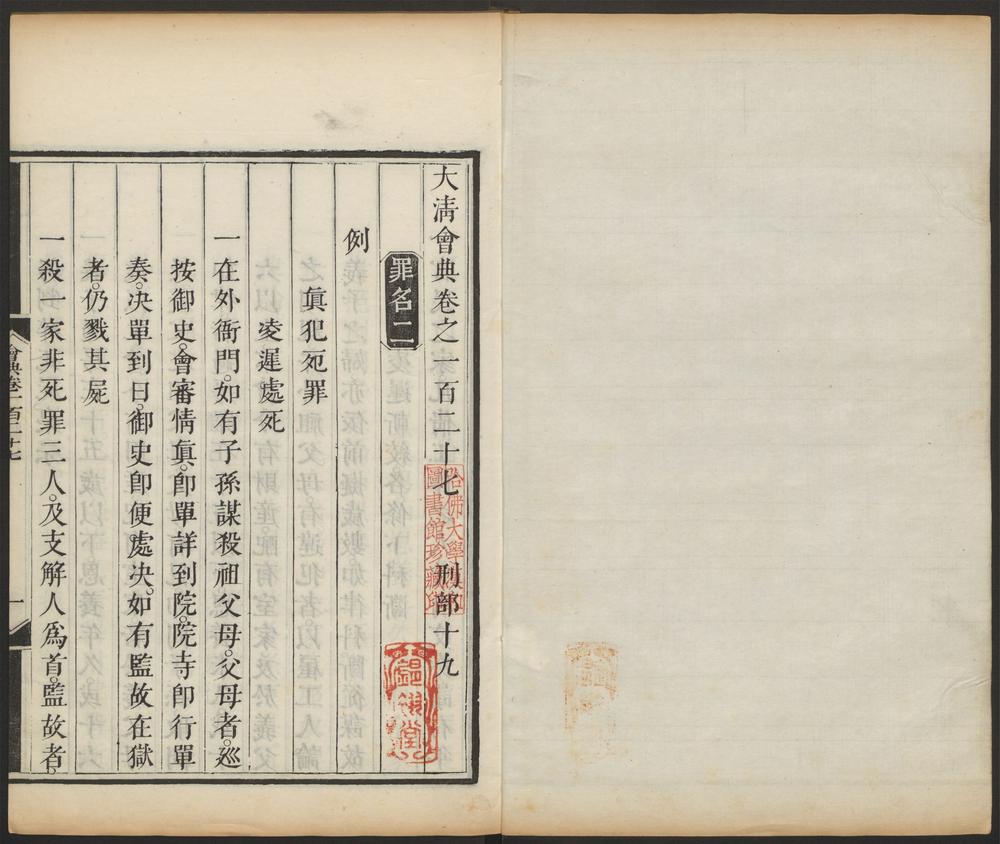 大淸會典卷之一百二十七 刑部十九
罪名二
例
眞犯死罪
凌遲處死
一在外衙門。如有子孫謀殺祖父母。父母者。巡
按御史。會審情眞。卽單詳到院。院寺卽行單
奏。決單到日。御史卽便處決。如有監故在獄
者。仍戮其屍
一殺一家非死罪三人。及支解人爲首。監故者。
會典卷一百二十七
一
哈佛大學漢和
圖書館珍藏印